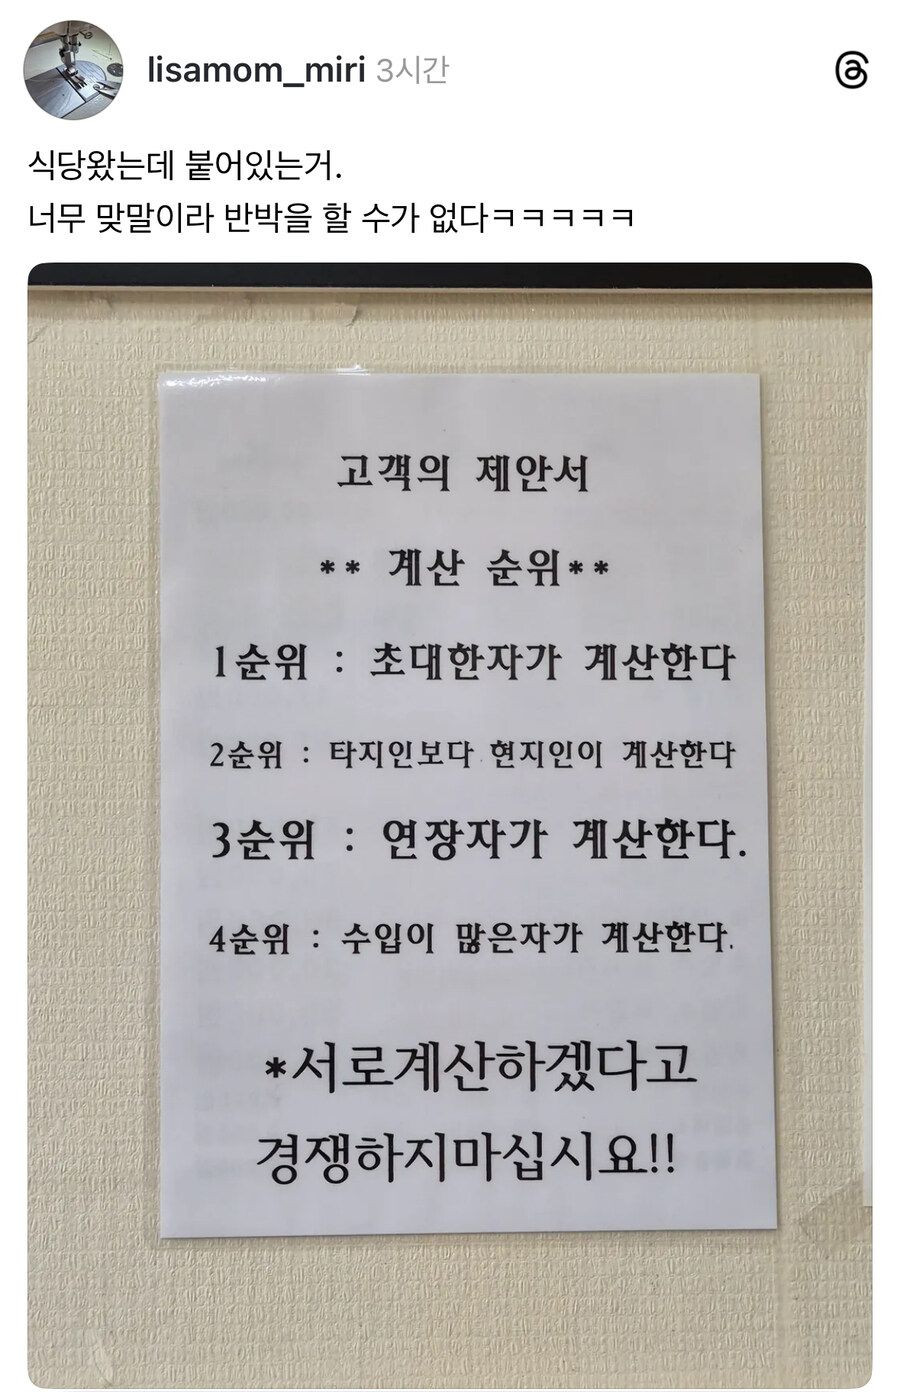 lisamom_miri 3시간
식당왔는데 붙어있는거.
너무 맞말이라 반박을 할 수가 없다ㅋㅋㅋㅋㅋ
고객의 제안서
** 계산 순위**
1순위 : 초대한자가 계산한다
2순위 : 타지인보다 현지인이 계산한다
3순위 : 연장자가 계산한다.
4순위 : 수입이 많은자가 계산한다.
*서로계산하겠다고
경쟁하지마십시요!!